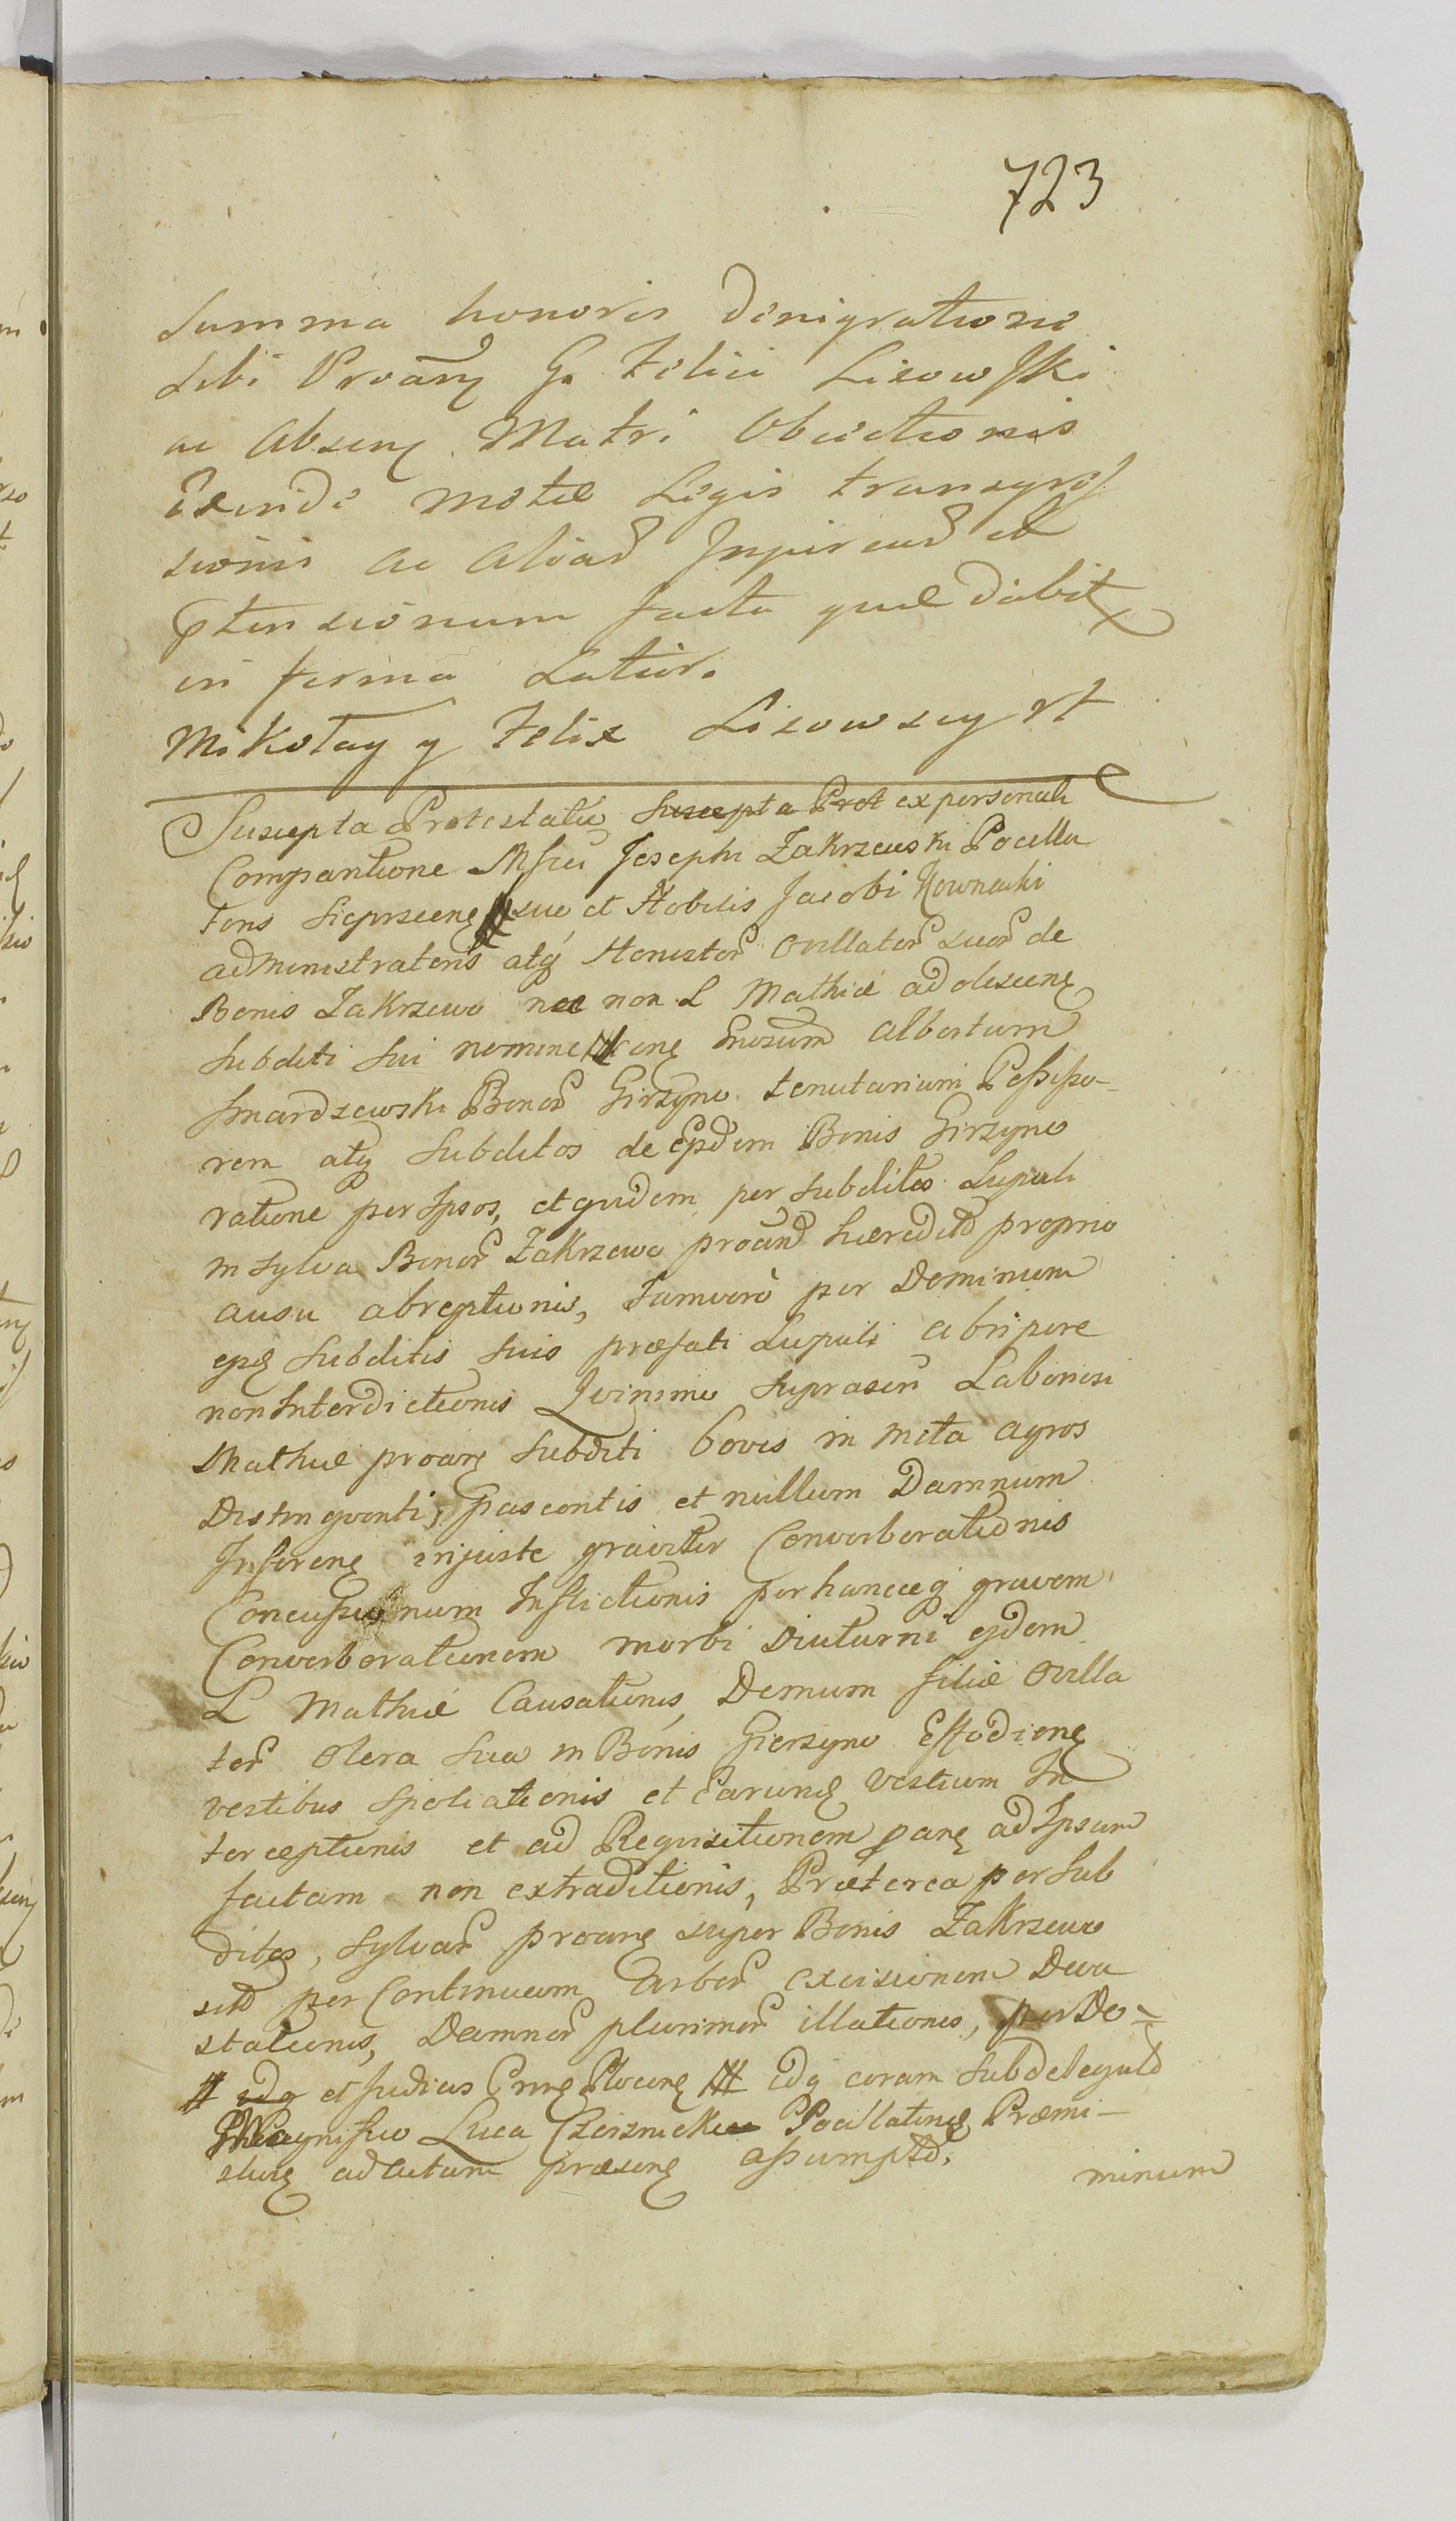 723
summa honoris denigratione
sibi Proãnς G. Felici Lisowski
ac Absenς Matri Obiectionis
Exinde motæ Legis transgres
sionis ac Aliar Injuriar et
Ptensionum facta quæ dabit
in forma Latior.
Mikołay y Felix Lisowscy rt
Suscepta Protestatio suscepta Prot ex personali
Comparitione Mfici Josephi Zakrzewski Pocilla
toris Sierpscenς suo et Nobilis Jacobi Kownacki
administratoris atq Honestor Ovillator suor de
Bonis Zakrzewo nec non L Mathiæ adolescenς
subditi sui nomine # conς Gnosum Albertum
Smardzewski Bonor Girzyno tenutarium Possesso-
rem atq Subditos de eijsdem Bonis Girzyno
ratione per Ipsos, et quidem per subditos Lupuli
in sylva Bonor Zakrzewo proãnς hæredit proprio
ausu abreptionis, Jamvero per Dominum
ejς subditis suis præfati Lupuli abripere
non Interdictionis Quinimo suprascri Laboriosi
Mathiæ proãnς subditi boves in meta agros
Distingventi, pascentis et nullum Damnum
Inferenς injuste graviter Converberationis
Concussionum Inflictionis per hancceq gravem
Converberationem morbi Diuturni ejdem
L Mathiæ Causationis, Demum filiæ Ovilla
tor Olera sua in Bonis Gierzyno Effodienς
vestibus spoliationis et earunς vestium In
terceptionis et ad Requisitionem panς ad Ipsum
factam non extraditionis, Præterea per Sub
ditos, sylvar proanς super Bonis Zakrzewo
sit per Continuam Arbor excisionem Deva
stationis, Damnor plurimor illationis, per Do=
# idq et Judicis Crnς Plocenς # Idq coram subdelegato
Magnifico Luca Czeiznicki Pocillatorς Præmi-
slieς ad actum præsenς assumpto.
minum